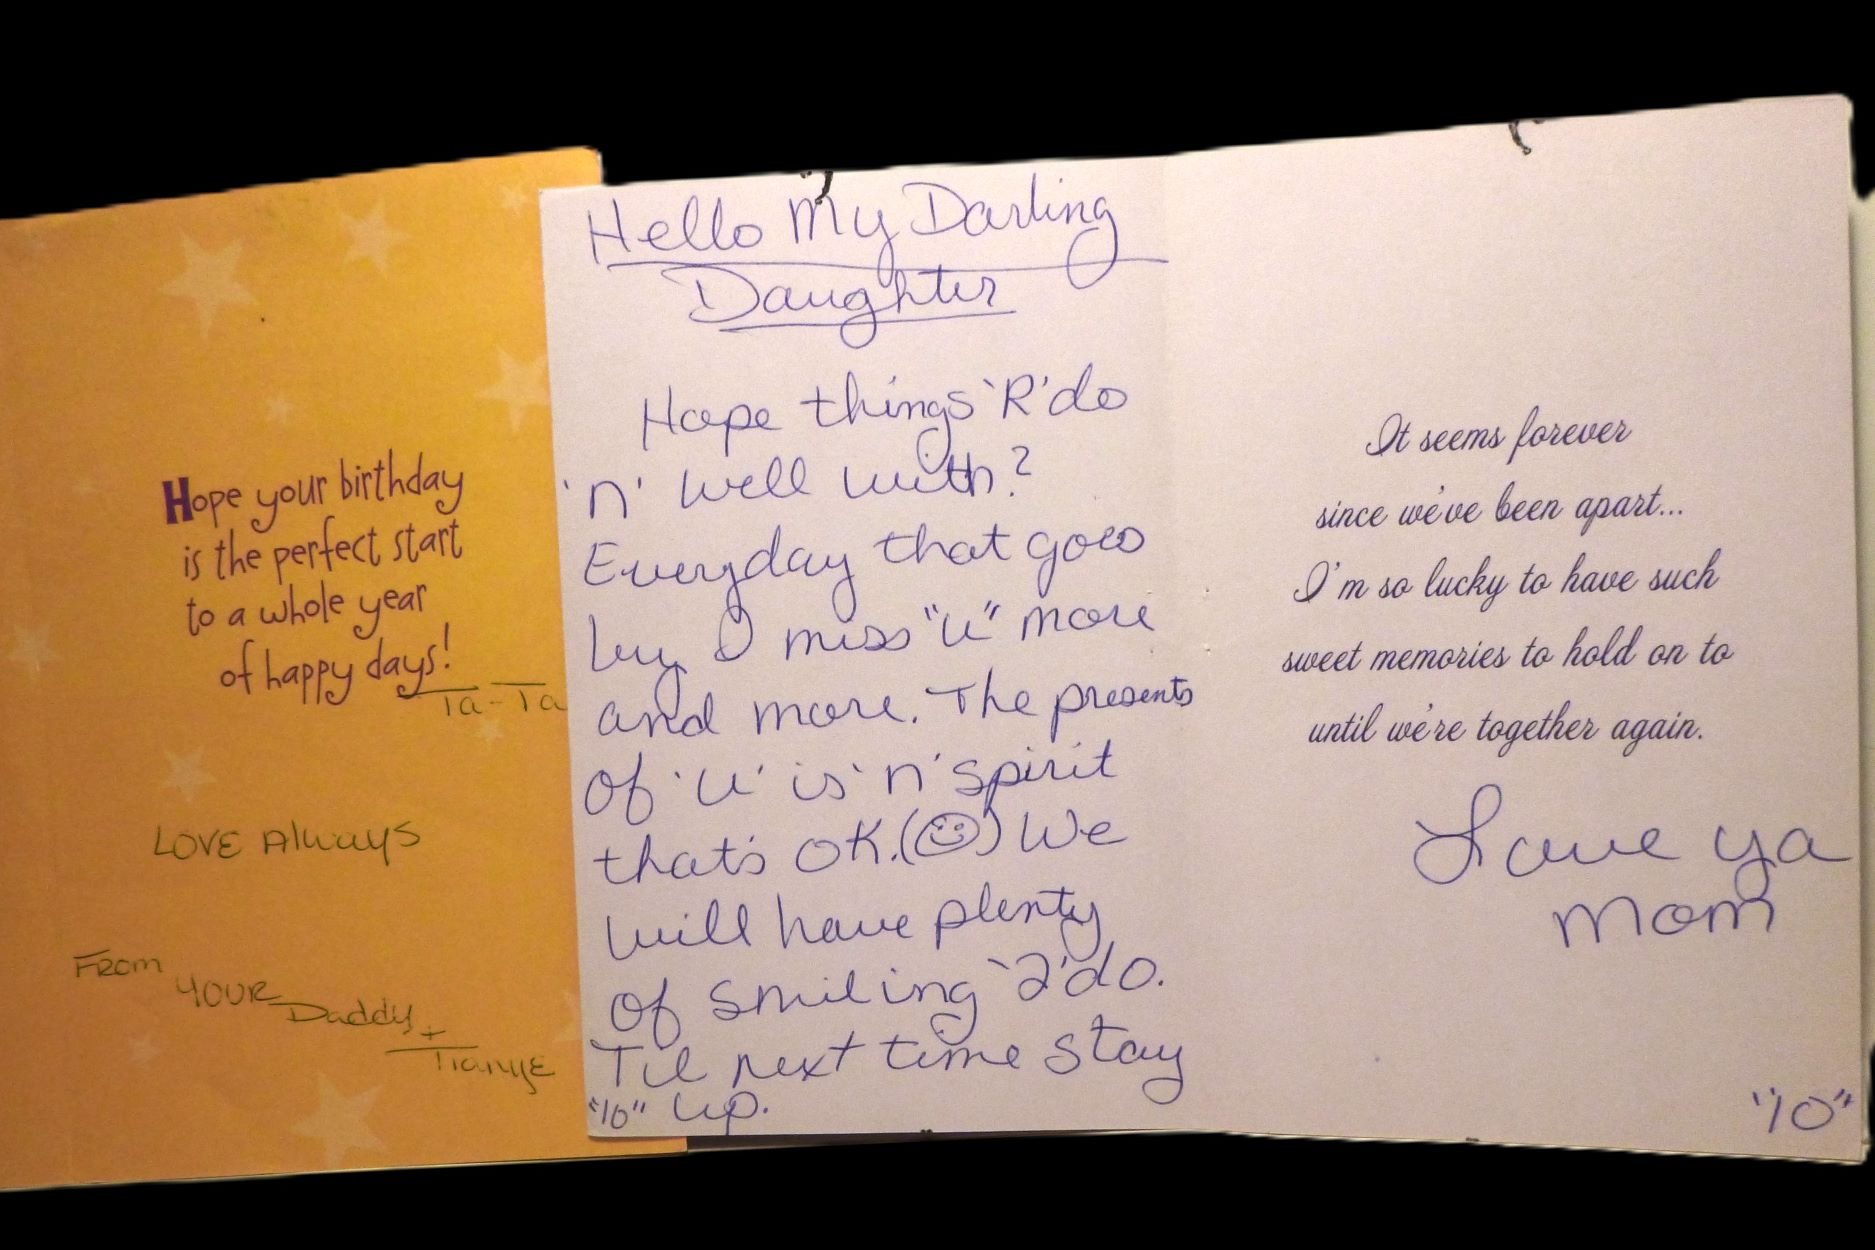 Hope your birthday
is the perfect start
to a whole year
of happy days!
Ta-Ta
LOVE Always
From
YOUR
Daddy +
Hello My Darling
Daughter
Hope things 'R' do
'n' well with?
Everyday that goes
by I miss "u" more
and more. The presents
of 'u' is 'n' spirit
that's OK.(☺) We
will have plenty
of smiling '2' do.
Til next time stay
"10" up.
It seems forever
since we've been apart...
I'm so lucky to have such
sweet memories to hold on to
until we're together again.
Love ya
Mom
"10"